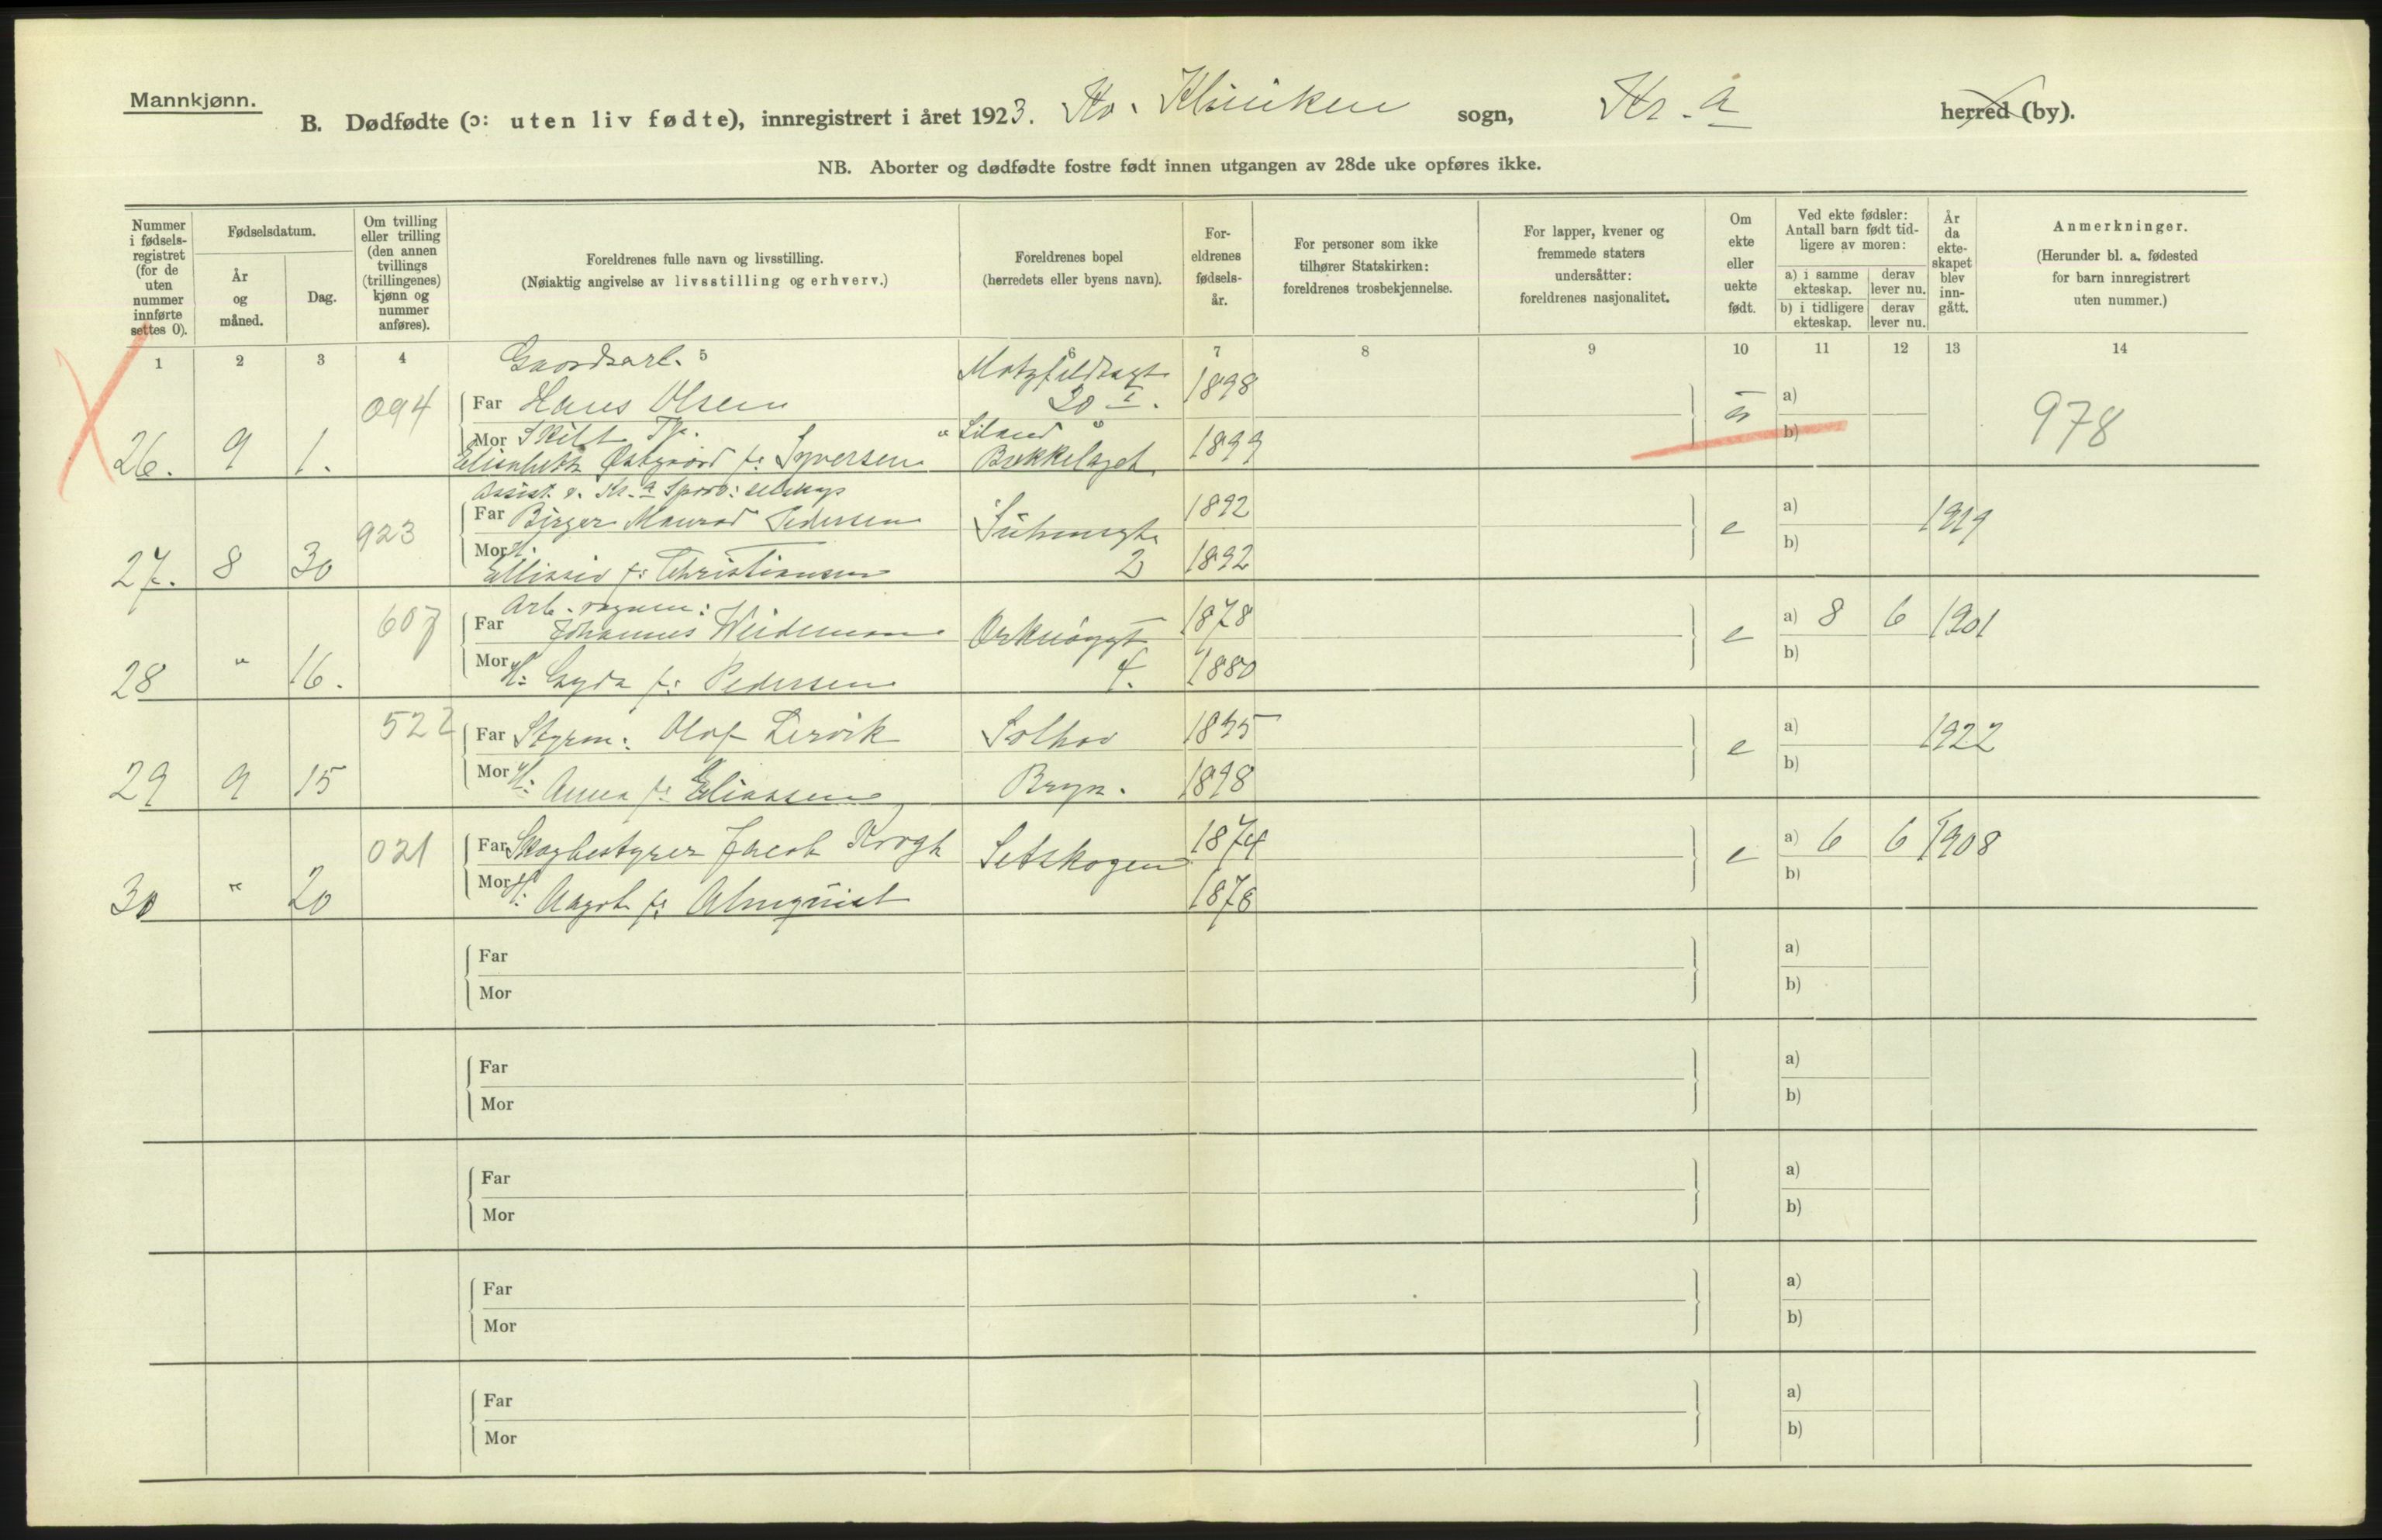 Mannkjønn.
B. Dødfødte (ɔ: uten liv fødte), innregistrert i året 1923. Kv. Kliniken sogn, Kr. a herred (by).
NB. Aborter og dødfødte fostre født innen utgangen av 28de uke opføres ikke.
Nummer i fødsels-registret (for de uten nummer innførte settes 0).
Fødselsdatum.
År og måned.
Dag.
Om tvilling eller trilling (den annen tvillings (trillingenes) kjønn og nummer anføres).
Foreldrenes fulle navn og livsstilling.
(Nøiaktig angivelse av livsstilling og erhverv.)
Foreldrenes bopel
(herredets eller byens navn).
For-eldrenes fødsels-år.
For personer som ikke tilhører Statskirken: foreldrenes trosbekjennelse.
For lapper, kvener og fremmede staters undersåtter: foreldrenes nasjonalitet.
Om ekte eller uekte født.
Ved ekte fødsler: Antall barn født tid-ligere av moren:
a) i samme ekteskap.
derav lever nu.
b) i tidligere ekteskap.
derav lever nu.
År da ekte-skapet blev inn-gått.
Anmerkninger.
(Herunder bl. a. fødested for barn innregistrert uten nummer.)
1 2 3 4 5 6 7 8 9 10 11 12 13 14
Gaardsarb.
094 Far Hans Olsen 20 I. 1898 a)
26. 9 1. Mor 1899 b) 978
Elisabeth Østgaard f: Syversen Bækkelaget
923 Far Birger Pedersen 1892 e a) 1919
27. 8 30 Mor H. f: Christiansen 2 1892 b)
607 Far Johannes Weideman 1878 e a) 8 6 1901
28 " 16. Mor H: Gyda f: Pedersen 4. 1880 b)
522 Far Styrm: Olaf Lervik Solhov 1895 e a) 1922
29 9 15 Mor H: Anna f: Eliassen Bryn. 1898 b)
021 Far Skogbestyrer Jacob Krogh Setskogen 1874 e a) 6 6 1908
30 " 20 Mor H: Aagot f: Almquist 1878 b)
Far a)
Mor b)
Far a)
Mor b)
Far a)
Mor b)
Far a)
Mor b)
Far a)
Mor b)